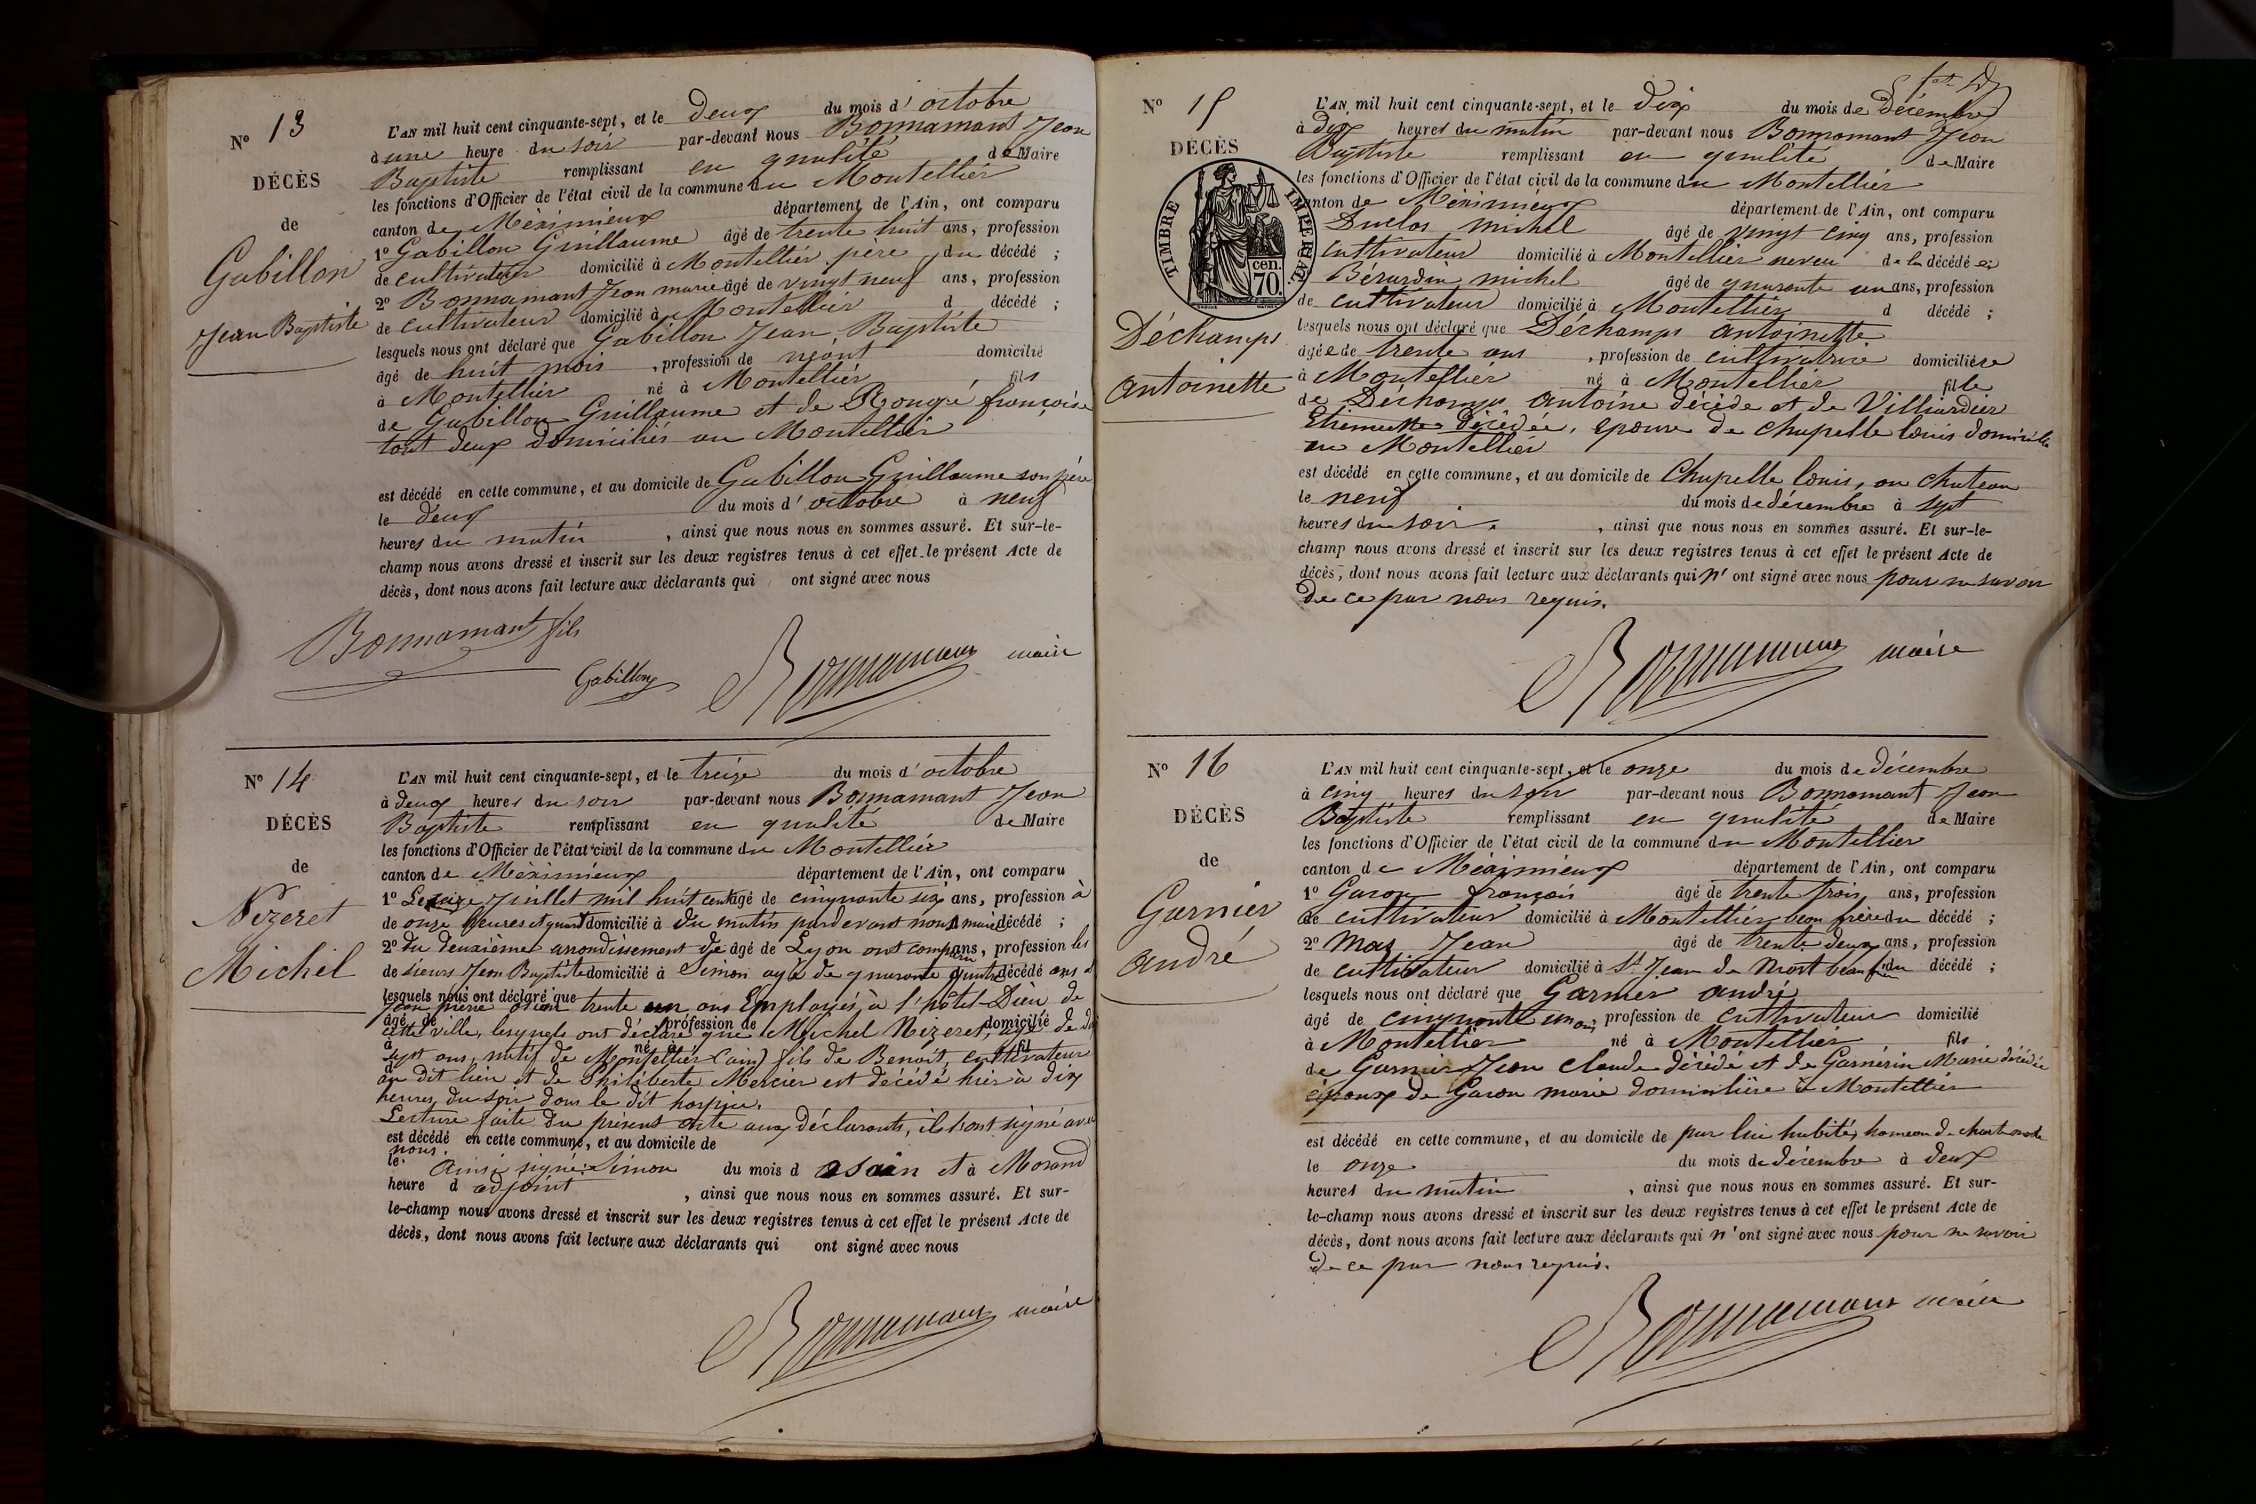 N° 13
DÉCÈS
de
Gabillon
Jean Baptiste
L'AN mil huit cent cinquante-sept, et le deux du mois d'octobre
à une heure du soir par-devant nous Bonnamant Jean
Baptiste remplissant en qualité de Maire
les fonctions d'Officier de l'état civil de la commune du Montellier
canton de Méximieux département de l'Ain, ont comparu
1° Gabillon Guillaume âgé de trente huit ans, profession
de cultivateur domicilié à Montellier père du décédé ;
2° Bonnamant Jean marie âgé de vingt neuf ans, profession
de cultivateur domicilié à Montellier d décédé ;
lesquels nous ont déclaré que Gabillon Jean Baptiste
âgé de huit mois , profession de néant domicilié
à Montellier né à Montellier fils
de Gabillon Guillaume et de Rougé françoise
tout deux domiciliés au Montellier
est décédé en cette commune, et au domicile de Gabillon Guillaume son père
le deux du mois d'octobre à neuf
heures du matin , ainsi que nous nous en sommes assuré. Et sur-le-
champ nous avons dressé et inscrit sur les deux registres tenus à cet effet le présent Acte de
décès, dont nous avons fait lecture aux déclarants qui ont signé avec nous
Bonnamant fils
Gabillon
Bonnamant maire
N° 14
DÉCÈS
de
Nezeret
Michel
L'AN mil huit cent cinquante-sept, et le treize du mois d'octobre
à deux heures du soir par-devant nous Bonnamant Jean
Baptiste remplissant en qualité de Maire
les fonctions d'Officier de l'état civil de la commune du Montellier
canton de Méximieux département de l'Ain, ont comparu
1° Le juillet mil huit cent âgé de cinquante six ans, profession à
de onze heures et quart domicilié à du matin pardevant nous maire décédé ;
2° du deuxième arrondissement de âgé de Lyon ont comparu ans, profession les
de sieurs Jean Baptiste domicilié à Simon agé de quarante décédé ans
lesquels nous ont déclaré que
Jean pierre trente un ans Employés à l'hôtel-Dieu de
âgé de profession de domicilié
cette ville, lesquels ont déclaré que Michel Nezeret, agé de dix
à né à fil
sept ans, natif de Montellier (ain) fils de Benoit, cultivateur
de
au dit lieu et de Philiberte Mercier est décédé hier à dix
heures du soir dans le dit hospice.
Lecture faite du présent acte aux déclarants, ils ont signé avec
est décédé en cette commune, et au domicile de
nous.
le Ainsi signé: Simon du mois d et à Morand
heure d adjoint , ainsi que nous nous en sommes assuré. Et sur-
le-champ nous avons dressé et inscrit sur les deux registres tenus à cet effet le présent Acte de
décès, dont nous avons fait lecture aux déclarants qui ont signé avec nous
Bonnamant maire
N° 15
DÉCÈS
TIMBRE IMPERIAL
70 cen.
Déchamps
antoinette
L'AN mil huit cent cinquante-sept, et le dix du mois de décembre
à dix heures du matin par-devant nous Bonnamant Jean
Baptiste remplissant en qualité de Maire
les fonctions d'Officier de l'état civil de la commune du Montellier
canton de Méximieux département de l'Ain, ont comparu
Duclos michel âgé de vingt cinq ans, profession
cultivateur domicilié à Montellier neveu de la décédée
Bérardin michel âgé de quarante un ans, profession
de cultivateur domicilié à Montellier d décédé ;
lesquels nous ont déclaré que Déchamps antoinette
âgée de trente ans , profession de cultivatrice domiciliée
à Montellier né à Montellier fille
de Déchamps antoine décédé et de Villiardier
Etiennette décédée, epouse de chapelle louis domicilié
au Montellier
est décédé en cette commune, et au domicile de Chapelle louis, au chateau
le neuf du mois de décembre à sept
heures du soir. , ainsi que nous nous en sommes assuré. Et sur-le-
champ nous avons dressé et inscrit sur les deux registres tenus à cet effet le présent Acte de
décès, dont nous avons fait lecture aux déclarants qui n'ont signé avec nous pour ne savoir
de ce par nous requis.
Bonnamant maire
N° 16
DÉCÈS
de
Garnier
andré
L'AN mil huit cent cinquante-sept, et le onze du mois de décembre
à cinq heures du soir par-devant nous Bonnamant Jean
Baptiste remplissant en qualité de Maire
les fonctions d'Officier de l'état civil de la commune du Montellier
canton de Méximieux département de l'Ain, ont comparu
1° Garon françois âgé de trente trois ans, profession
de cultivateur domicilié à Montellier beau frère du décédé ;
2° Mas Jean âgé de trente deux ans, profession
de cultivateur domicilié à St Jean de Niost beau du décédé ;
lesquels nous ont déclaré que Garnier andré
âgé de cinquante un ans, profession de cultivateur domicilié
à Montellier né à Montellier fils
de Garnier Jean claude décédé et de Garnérin Marie décédée
époux de Garon marie domiciliée à Montellier
est décédé en cette commune, et au domicile de par lui habité, hameau de
le onze du mois de décembre à deux
heures du matin , ainsi que nous nous en sommes assuré. Et sur-
le-champ nous avons dressé et inscrit sur les deux registres tenus à cet effet le présent Acte de
décès, dont nous avons fait lecture aux déclarants qui n'ont signé avec nous pour ne savoir
de ce par nous requis.
Bonnamant maire